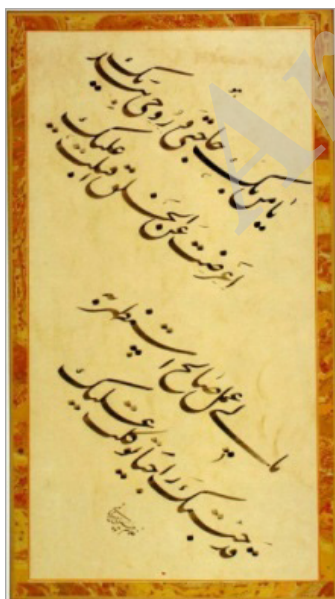 هو
یا من بک حاجتی و روحی بیدیک
اعرضت عن الخلق و اقبلت علیک
مالی عمل صالح استظهر به
قد جئتک راجیا توکلت علیک